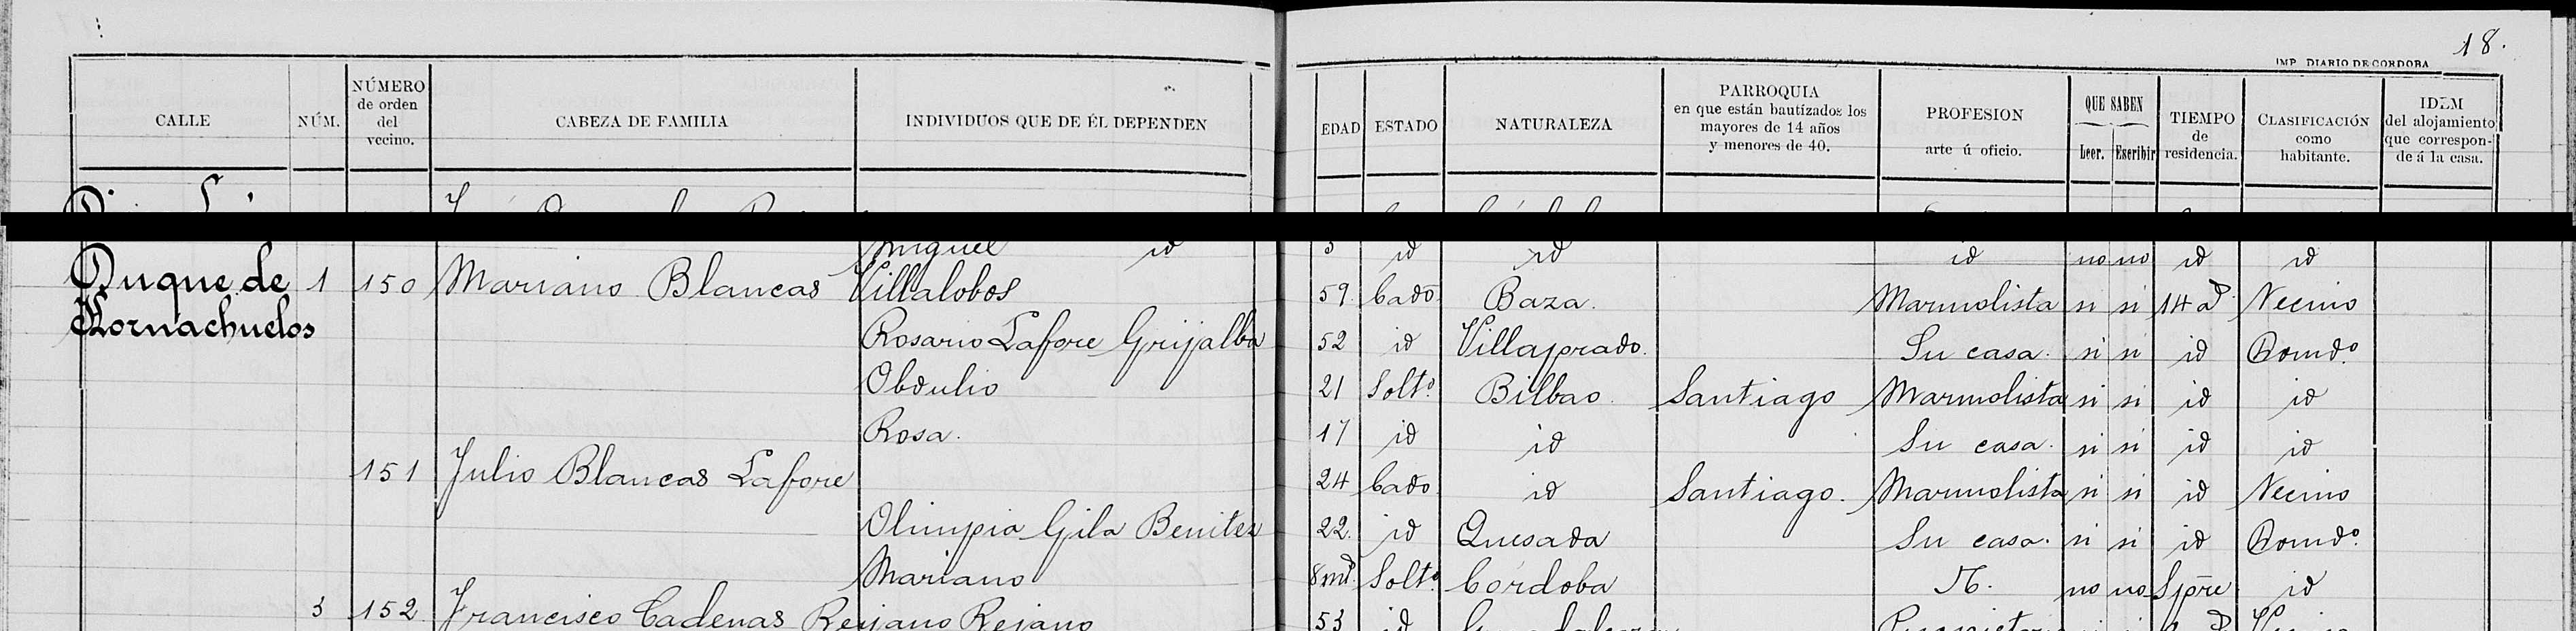 18.
IMP. DIARIO DE CORDOBA
CALLE NÚM. NÚMERO de orden del vecino. CABEZA DE FAMILIA INDIVIDUOS QUE DE ÉL DEPENDEN EDAD ESTADO NATURALEZA PARROQUIA en que están bautizados los mayores de 14 años y menores de 40. PROFESION arte ú oficio. QUE SABEN Leer. Escribir TIEMPO de residencia. CLASIFICACIÓN como habitante. IDEM del alojamiento que correspon- de á la casa.
Miguel id 3 id id id no no id id
Duque de 1 150 Mariano Blancas Villalobos 59 Cado Baza. Marmolista si si 14 a.s Vecino
Hornachuelos Rosario Lafore Grijalba 52 id Villaprado. Su casa. si si id Domdo.
Obdulio 21 Solto. Bilbao. Santiago Marmolista si si id id
Rosa. 17 id id Su casa. si si id id
151 Julio Blancas Lafore 24 Cado. id Santiago. Marmolista si si id Vecino
Olimpia Gila Benitez 22. id Quesada Su casa. si si id Domdo.
Mariano 8 ms. Solto. Córdoba N. no no Spre id
3 152 Francisco Cadenas Rejano Rejano 53 id